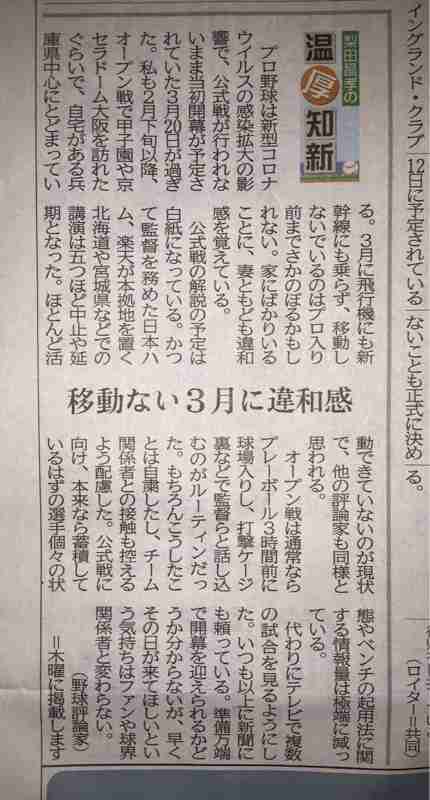 イングランド・クラブ
12日に予定されている
ないことも正式に決め
る。
(ロイター=共同)
梨田昌孝の
温厚知新
プロ野球は新型コロナ
ウイルスの感染拡大の影
響で、公式戦が行われな
いまま当初開幕が予定さ
れていた3月20日が過ぎ
た。私も2月下旬以降、
オープン戦で甲子園や京
セラドーム大阪を訪れた
ぐらいで、自宅がある兵
庫県中心にとどまってい
る。3月に飛行機にも新
幹線にも乗らず、移動し
ないでいるのはプロ入り
前までさかのぼるかもし
れない。家にばかりいる
ことに、妻ともども違和
感を覚えている。
公式戦の解説の予定は
白紙になっている。かつ
て監督を務めた日本ハ
ム、楽天が本拠地を置く
北海道や宮城県などでの
講演は五つほど中止や延
期となった。ほとんど活
移動ない3月に違和感
動できていないのが現状
で、他の評論家も同様と
思われる。
オープン戦は通常なら
プレーボール3時間前に
球場入りし、打撃ケージ
裏などで監督らと話し込
むのがルーティンだっ
た。もちろんこうしたこ
とは自粛したし、チーム
関係者との接触も控える
よう配慮した。公式戦に
向け、本来なら蓄積して
いるはずの選手個々の状
態やベンチの起用法に関
する情報量は極端に減っ
ている。
代わりにテレビで複数
の試合を見るようにし
た。いつも以上に新聞に
も頼っている。準備万端
で開幕を迎えられるかど
うか分からないが、早く
その日が来てほしいとい
う気持ちはファンや球界
関係者と変わらない。
(野球評論家)
=木曜に掲載します